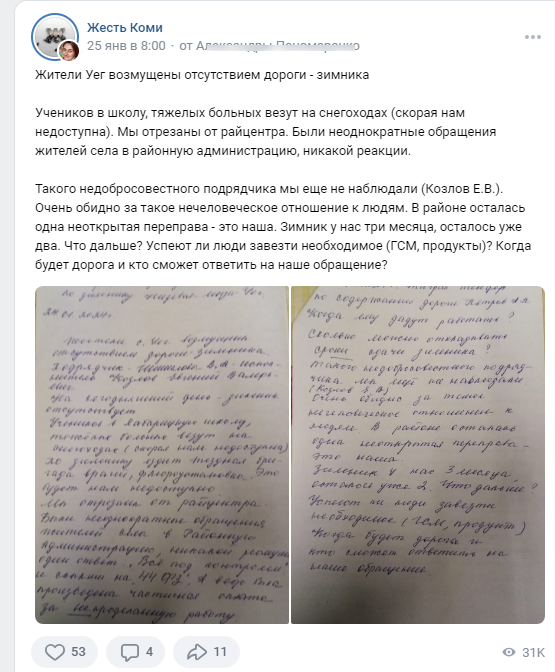 Жесть Коми
25 янв в 8:00 · от
Жители Уег возмущены отсутствием дороги - зимника
Учеников в школу, тяжелых больных везут на снегоходах (скорая нам
недоступна). Мы отрезаны от райцентра. Были неоднократные обращения
жителей села в районную администрацию, никакой реакции.
Такого недобросовестного подрядчика мы еще не наблюдали (Козлов Е.В.).
Очень обидно за такое нечеловеческое отношение к людям. В районе осталась
одна неоткрытая переправа - это наша. Зимник у нас три месяца, осталось уже
два. Что дальше? Успеют ли люди завезти необходимое (ГСМ, продукты)? Когда
будет дорога и кто сможет ответить на наше обращение?
по зимнику
Жители с. Уег возмущены
отсутствием дороги-зимника.
Подрядчик
Козлов Евгений
На сегодняшний день - зимник
отсутствует
Учеников в
школу,
больных везут на
снегоходах (скорая нам недоступна)
По зимнику ездит
врачей, флюороустановка. Это
будет нам недоступно.
Мы отрезаны от райцентра.
Были неоднократные обращения
жителей села в Районную
администрацию, никакой реакции
один ответ: "Всё под контролем"
и
на "44 ФЗ". А ведь была
произведена частичная оплата
за непроделанную работу
по содержанию дороги Петров А.А
Когда ему дадут работать?
Сколько можно откладывать
сроки сдачи зимника?
Такого недобросовестного подряд-
чика мы ещё не наблюдали
(Козлов Е.В)
Очень обидно за такое
нечеловеческое отношение к
людям. В районе осталась
одна неоткрытая переправа -
это наша.
Зимник у нас 3 месяца,
осталось уже 2. Что дальше?
Успеют ли люди завезти
необходимое (ГСМ, продукты)
Когда будет дорога и
кто сможет ответить на
наше обращение
53
4
11
31K